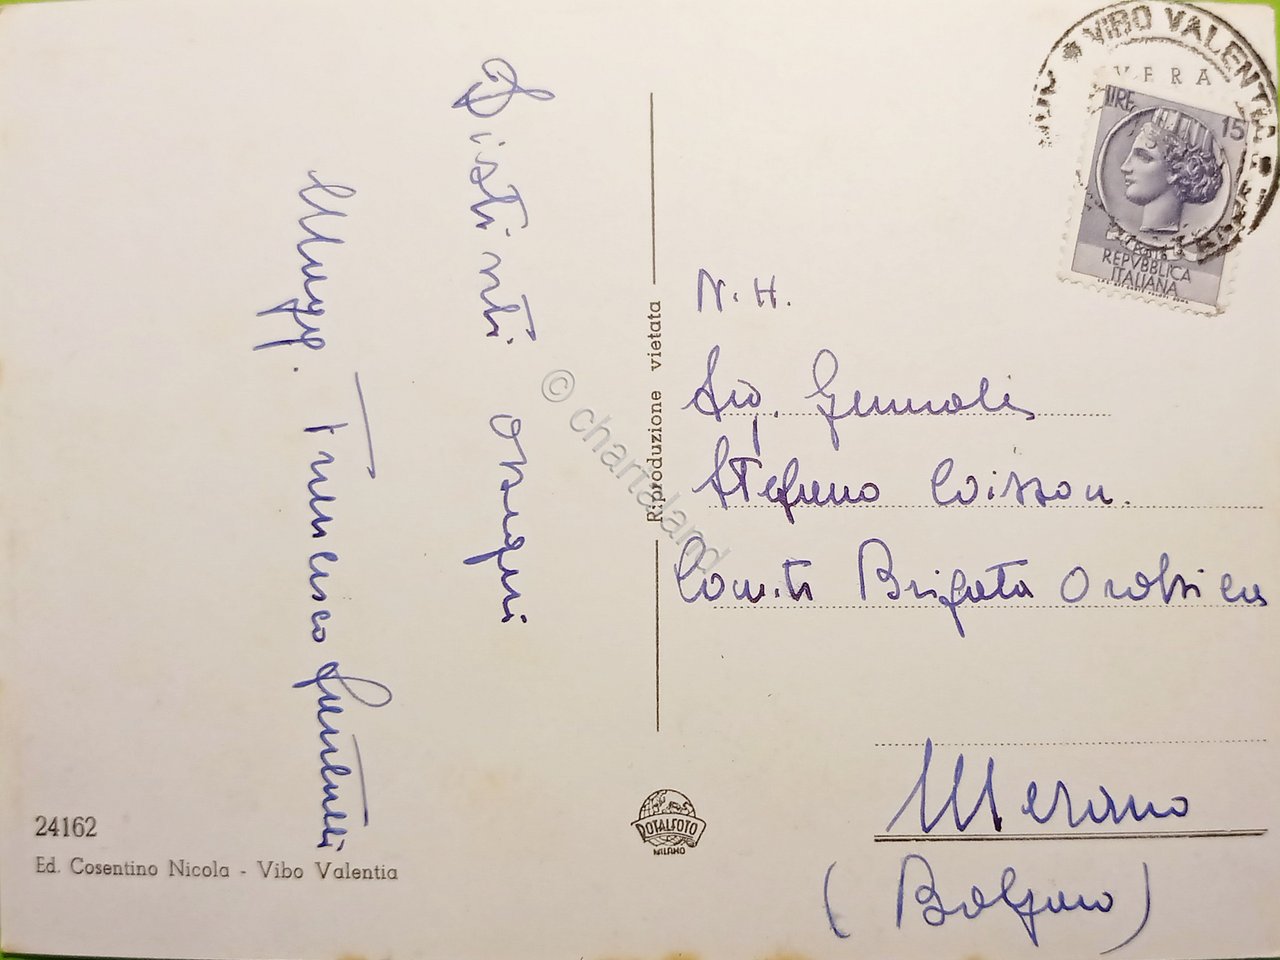 Distinti ossequi
Magg. Francesco
VIBO VALENTIA
VERA
LIRE 15
REPVBBLICA
ITALIANA
N. H.
Sig. Generale
Stefano Coisson.
Com.te Brigata Orobica
Merano
(Bolzano)
Riproduzione vietata
© chartaland
ROTALFOTO
MILANO
24162
Ed. Cosentino Nicola - Vibo Valentia